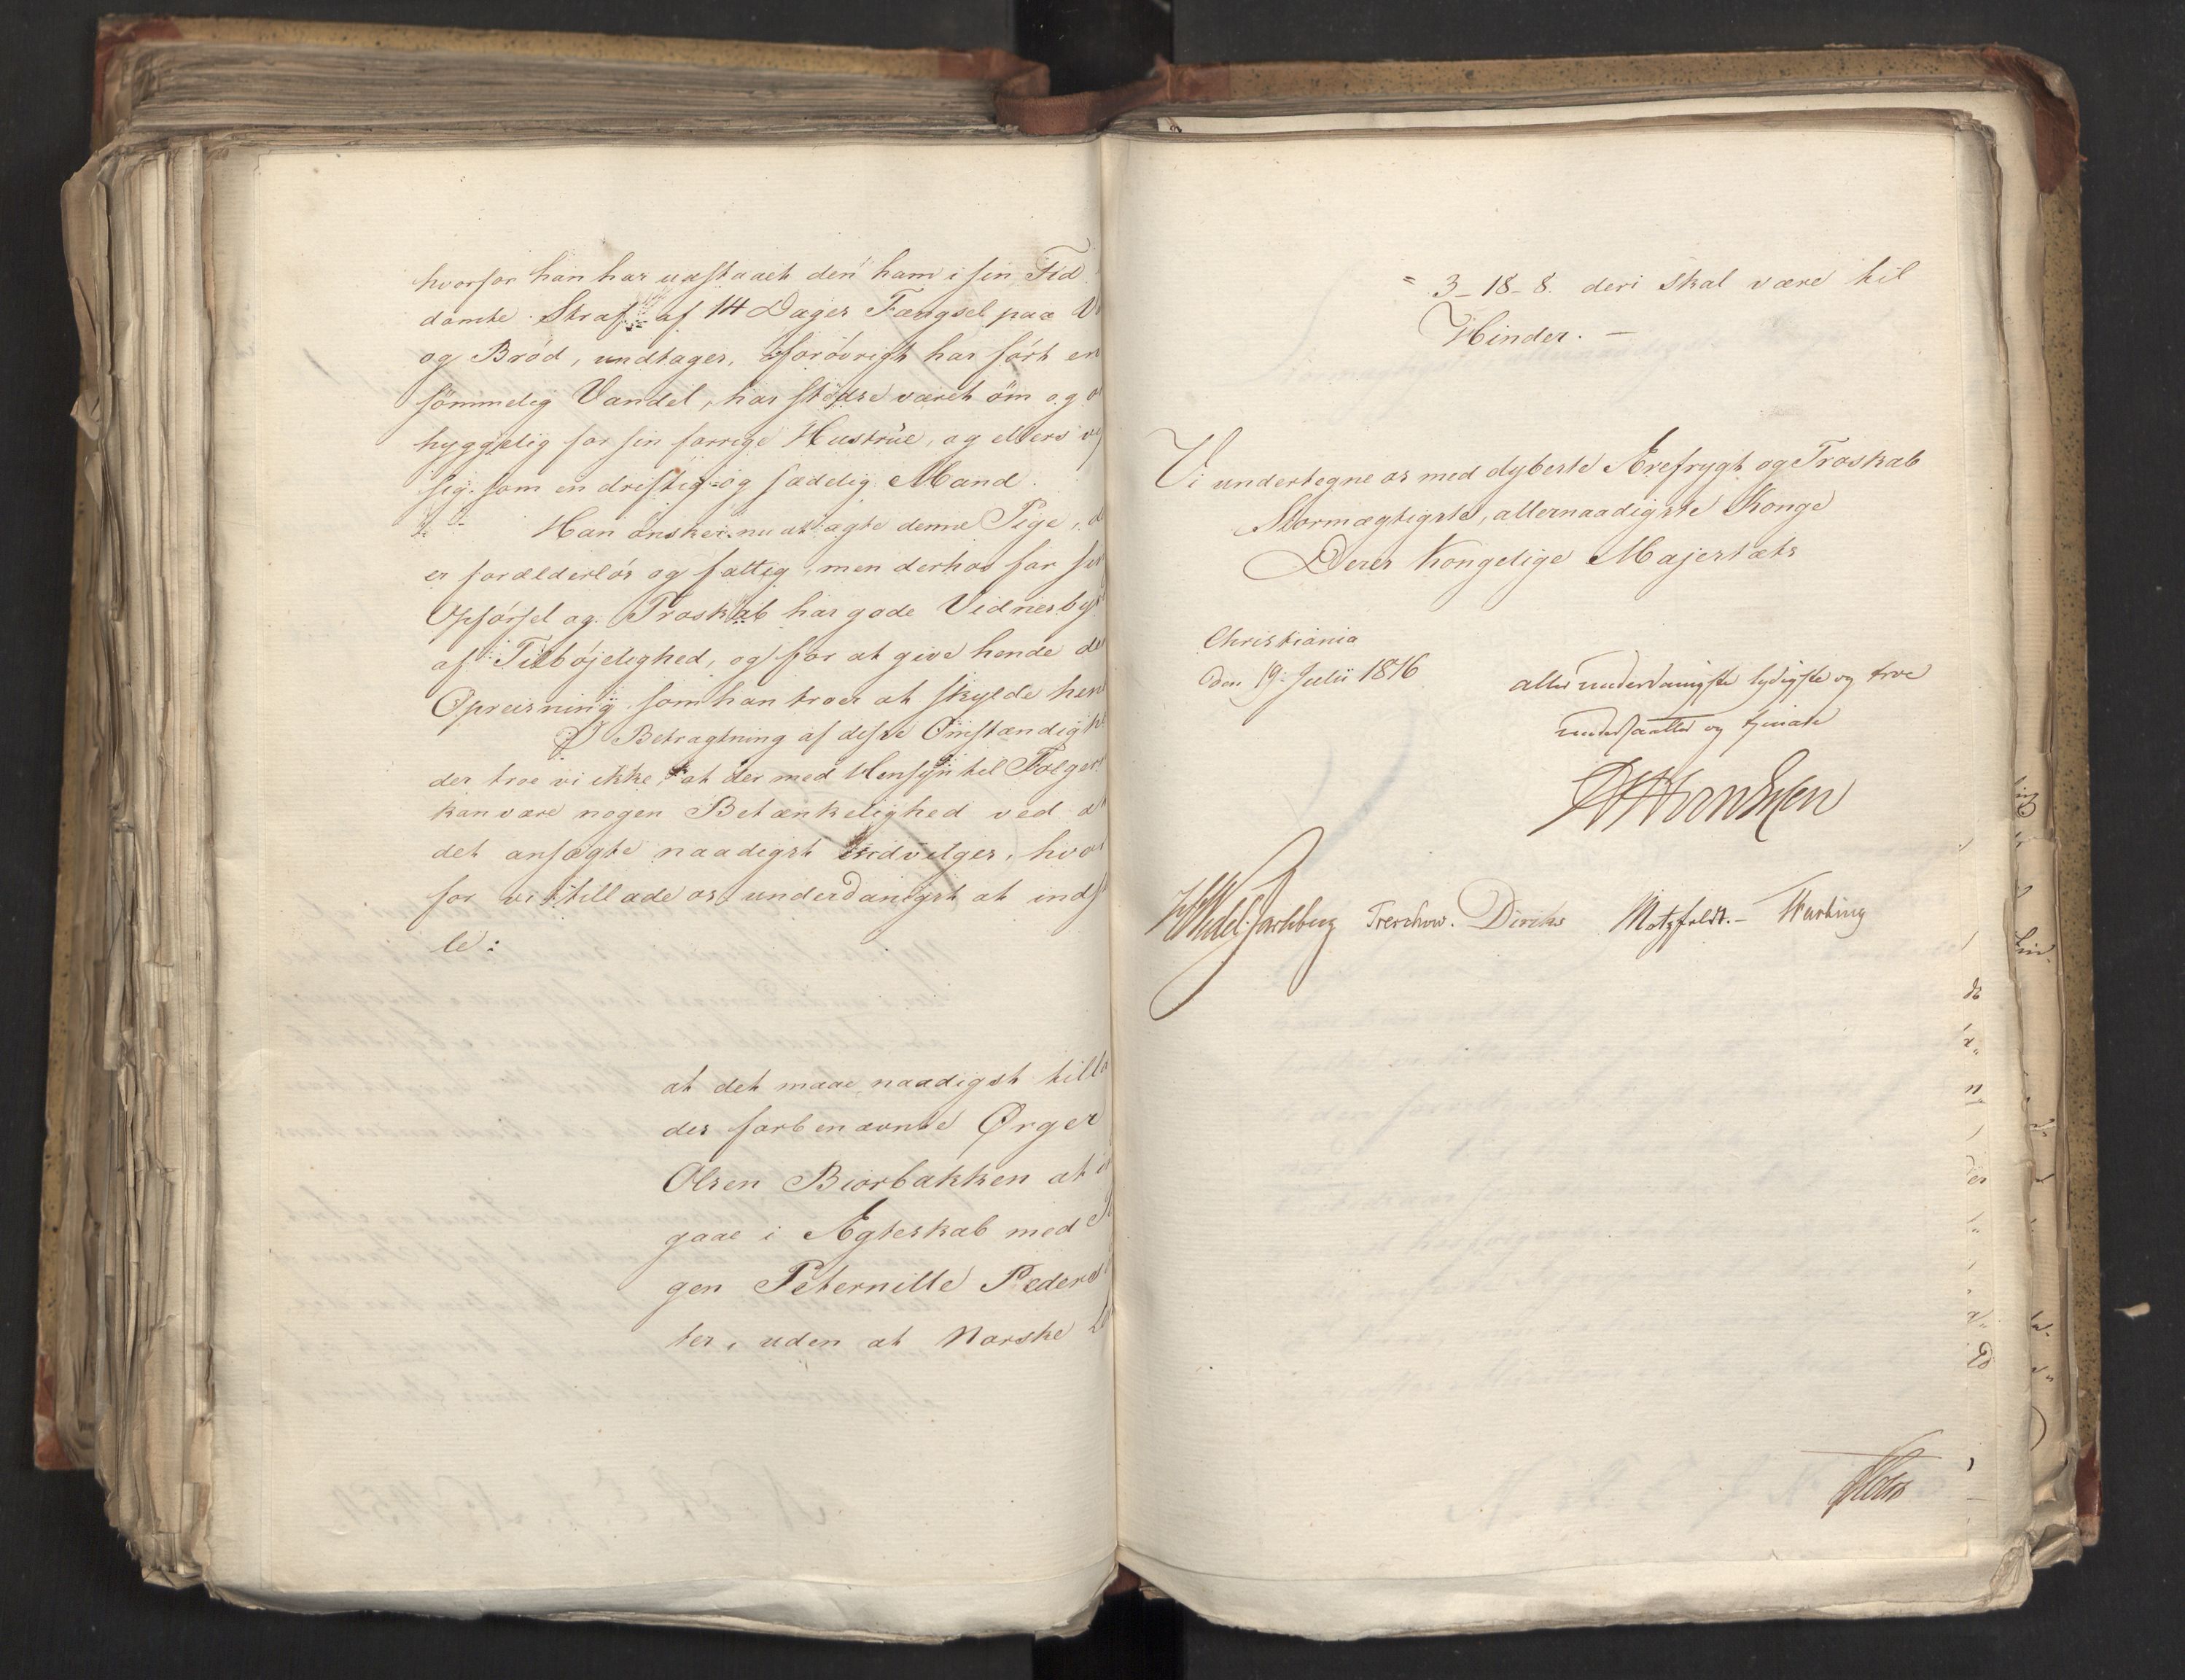 hvorfor han har udstaaet den ham i sin Tid
dömte Straf af 14 Dages Fængsel paa V
og Bröd, undtages, forövrigt har fört en
sömmelig Vandel, har stedse været öm og o
hyggelig for sin forrige Hustrue, og ellers
sig som en driftig og sædelig Mand.
Han önsker nu at ægte denne Pige, d
er forælderlös og fattig, men derhos for sin
Opförsel og Troskab har gode Vidnesby
af Tilböjelighed, og for at give hende de
Opreisning som han troer at skylde hen
I Betragtning af disse Omstændighe
der troe vi ikke at der med Hensyn til Fölger
kan være nogen Betænkelighed ved a
det ansøgte naadigst indvilges, hvor
for vi tillade os underdanigst at indst
le:
at det maae naadigst tilla
des forbenævnte Ørger
Olsen Biorbakken at in
gaae i Ægteskab med Pi
gen Peternille Peders
ter, uden at Norske L
= 3-18-8. deri skal være til
Hinder. —
Vi undertegne os med dybeste Ærefrygt og Troskab
Stormægtigste, allernaadigste Konge
Deres Kongelige Majestæts
Christiania
den 19 Julii 1816
allerunderdanigste lydigste og troe
undersaatter og tjenere
Wedel Jarlsberg Treschow. Diriks Motzfeldt. –